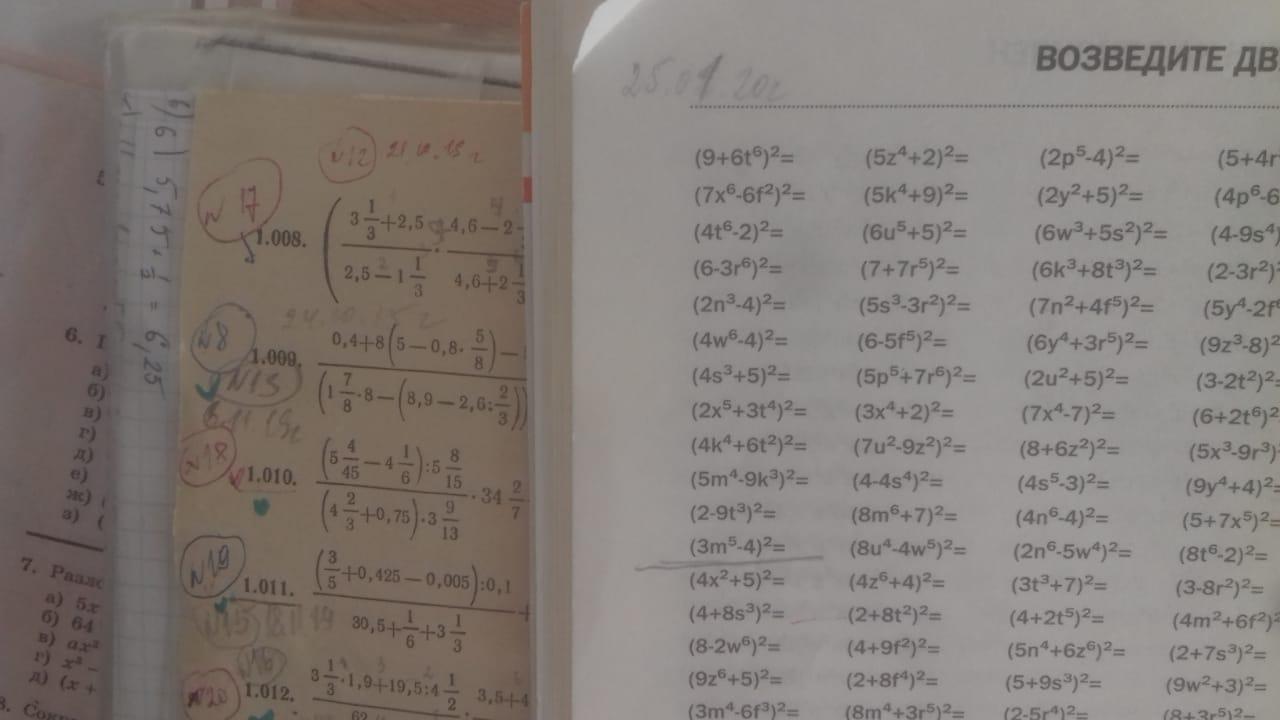 6) 6) 5,75 + 1/2 = 6,25
6.
а)
б)
в)
г)
д)
е)
ж) (
з) (
7. Разло
а) 5x
б) 64
в) ax²
г) x³ –
д) (x +
8. Сокр
№12 21.10.19 г
№17
1.008. (3 1/3 + 2,5 / 2,5 – 1 1/3 · 4,6 – 2 / 4,6 + 2 1/3
№8
1.009. 0,4+8(5 – 0,8 · 5/8) – / (1 7/8 · 8 – (8,9 – 2,6 : 2/3))
№13
6.11.19г
№18
1.010. (5 4/45 – 4 1/6) : 5 8/15 / (4 2/3 + 0,75) · 3 9/13 · 34 2/7
№19
1.011. (3/5 + 0,425 – 0,005) : 0,1 / 30,5 + 1/6 + 3 1/3 +
№15 18.11.19
№16
№20
1.012. 3 1/3 · 1,9 + 19,5 : 4 1/2 / 62 · 3,5+4
25.01.20г
ВОЗВЕДИТЕ ДВ
(9+6t⁶)²= (5z⁴+2)²= (2p⁵-4)²= (5+4r
(7x⁶-6f²)²= (5k⁴+9)²= (2y²+5)²= (4p⁶-6
(4t⁶-2)²= (6u⁵+5)²= (6w³+5s²)²= (4-9s⁴)
(6-3r⁶)²= (7+7r⁵)²= (6k³+8t³)²= (2-3r²)²
(2n³-4)²= (5s³-3r²)²= (7n²+4f⁵)²= (5y⁴-2f
(4w⁶-4)²= (6-5f⁵)²= (6y⁴+3r⁵)²= (9z³-8)²
(4s³+5)²= (5p⁵+7r⁶)²= (2u²+5)²= (3-2t²)²=
(2x⁵+3t⁴)²= (3x⁴+2)²= (7x⁴-7)²= (6+2t⁶)²
(4k⁴+6t²)²= (7u²-9z²)²= (8+6z²)²= (5x³-9r³)
(5m⁴-9k³)²= (4-4s⁴)²= (4s⁵-3)²= (9y⁴+4)²=
(2-9t³)²= (8m⁶+7)²= (4n⁶-4)²= (5+7x⁵)²=
(3m⁵-4)²= (8u⁴-4w⁵)²= (2n⁶-5w⁴)²= (8t⁶-2)²=
(4x²+5)²= (4z⁶+4)²= (3t³+7)²= (3-8r²)²=
(4+8s³)²= (2+8t²)²= (4+2t⁵)²= (4m²+6f²)²
(8-2w⁶)²= (4+9f²)²= (5n⁴+6z⁶)²= (2+7s³)²=
(9z⁶+5)²= (2+8f⁴)²= (5+9s³)²= (9w²+3)²=
(3m⁴-6f³)²= (8m⁴+3r⁵)²= (2-5r⁴)²= (8+3r⁵)²=